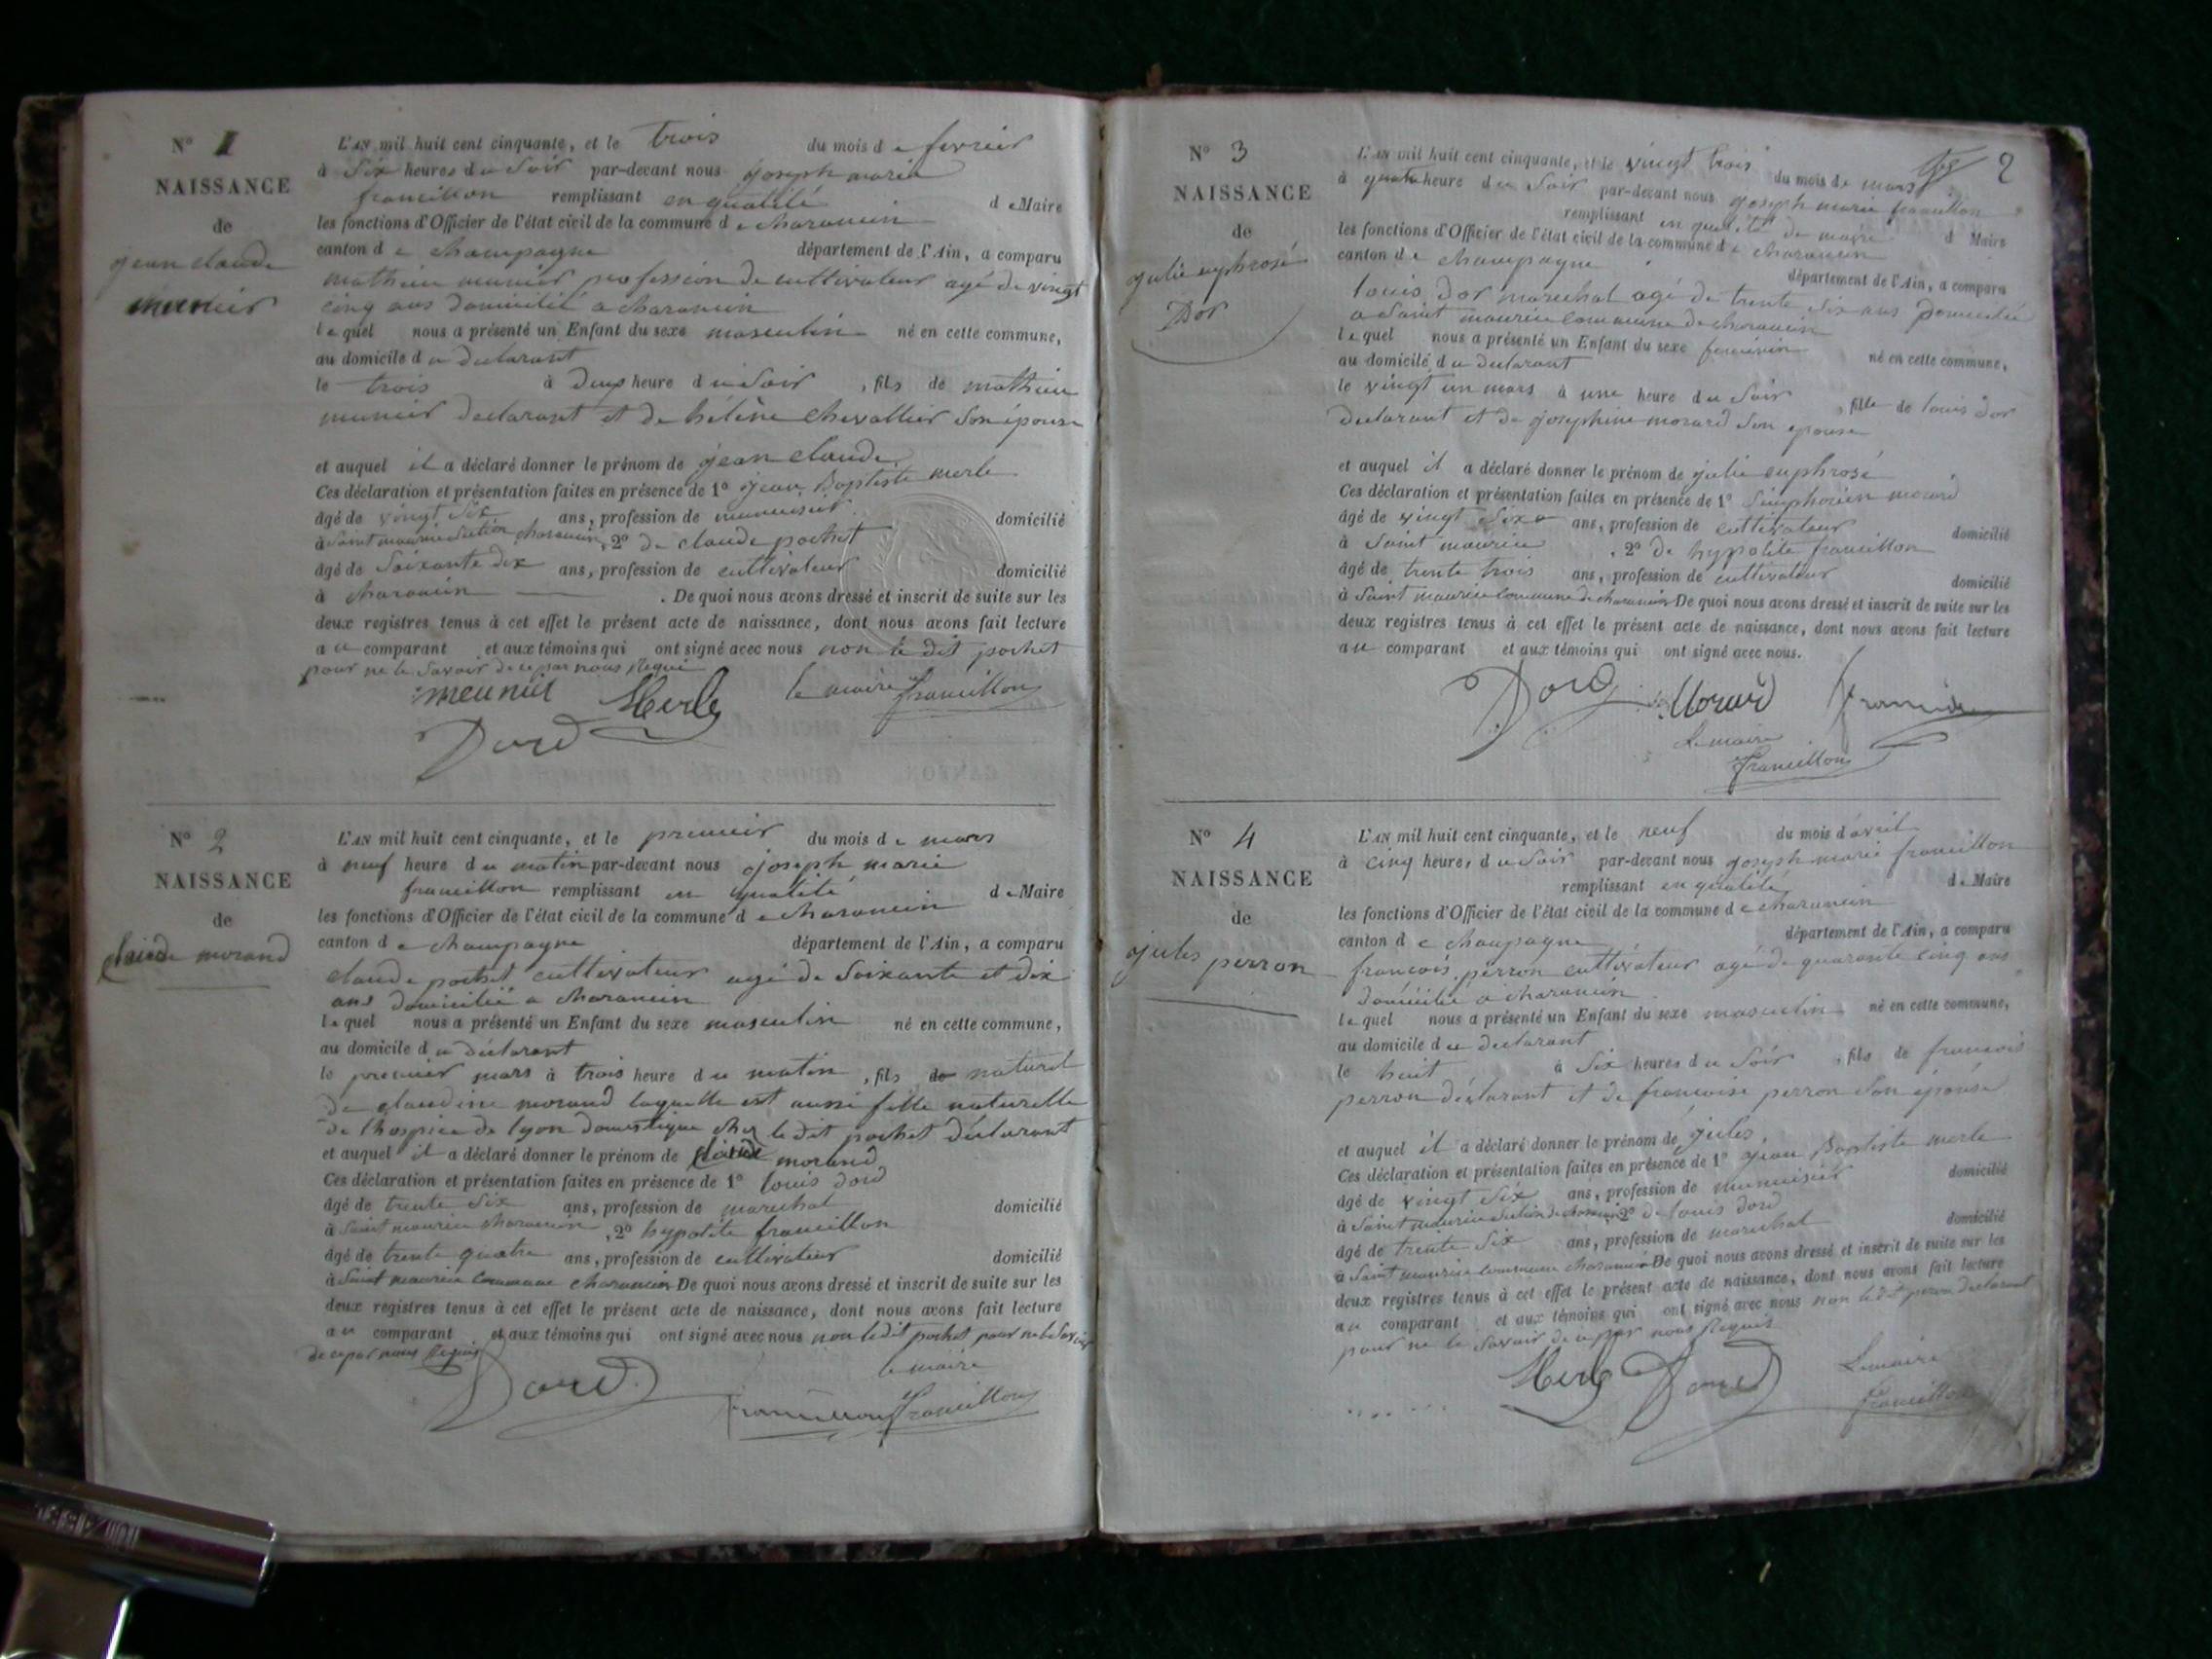 N° 1
NAISSANCE
de
jean claude
munier
L'AN mil huit cent cinquante, et le trois du mois de fevrier
à Six heures du Soir par-devant nous joseph marie
francillon remplissant en qualité de Maire
les fonctions d'Officier de l'état civil de la commune de charancin
canton de champagne département de l'Ain, a comparu
mathieu munier profession de cultivateur agé de vingt
cinq ans domicilié a charancin
lequel nous a présenté un Enfant du sexe masculin né en cette commune,
au domicile du declarant
le trois à deux heure du Soir , fils de mathieu
munier declarant et de hélène chevallier Son épouse
et auquel il a déclaré donner le prénom de jean claude
Ces déclaration et présentation faites en présence de 1° jean Baptiste merle
âgé de vingt Six ans, profession de menuisier domicilié
à Saint maurice Section charancin, 2° de claude pochet
âgé de Soixante dix ans, profession de cultivateur domicilié
à charancin . De quoi nous avons dressé et inscrit de suite sur les
deux registres tenus à cet effet le présent acte de naissance, dont nous avons fait lecture
au comparant et aux témoins qui ont signé avec nous non le dit pochet
pour ne le Savoir de ce par nous Requi
meunier Merle le maire francillon
Dord
N° 2
NAISSANCE
de
claude morand
L'AN mil huit cent cinquante, et le premier du mois de mars
à neuf heure du matin par-devant nous joseph marie
francillon remplissant en qualité de Maire
les fonctions d'Officier de l'état civil de la commune de charancin
canton de champagne département de l'Ain, a comparu
claude pochet cultivateur agé de Soixante et dix
ans domicilié a charancin
lequel nous a présenté un Enfant du sexe masculin né en cette commune,
au domicile du déclarant
le premier mars à trois heure du matin , fils de naturel
de claudine morand laquelle est aussi fille naturelle
de l'hospice de lyon domestique chez le dit pochet déclarant
et auquel il a déclaré donner le prénom de claude morand
Ces déclaration et présentation faites en présence de 1° louis dord
âgé de trente Six ans, profession de marechal domicilié
à Saint maurice charancin , 2° hypolite francillon
âgé de trente quatre ans, profession de cultivateur domicilié
à Saint maurice commune charancin De quoi nous avons dressé et inscrit de suite sur les
deux registres tenus à cet effet le présent acte de naissance, dont nous avons fait lecture
au comparant et aux témoins qui ont signé avec nous non ledit pochet pour ne le Savoir
de ce par nous Requis
le maire
Dord francillon francillon
2
N° 3
NAISSANCE
de
julie euphrosé
Dor
L'AN mil huit cent cinquante, et le vingt trois du mois de mars
à quatre heure du Soir par-devant nous joseph marie francillon
remplissant en qualité de maire d Maire
les fonctions d'Officier de l'état civil de la commune de charancin
canton de champagne département de l'Ain, a comparu
louis dor marechal agé de trente Six ans Domicilié
a Saint maurice commune de charancin
lequel nous a présenté un Enfant du sexe feminin né en cette commune,
au domicile du declarant
le vingt un mars à une heure du Soir , fille de louis dor
declarant et de josephine morard Son epouse
et auquel il a déclaré donner le prénom de julie euphrosé
Ces déclaration et présentation faites en présence de 1° Simphorien morard
âgé de vingt Six ans, profession de cultivateur domicilié
à Saint maurice , 2° de hypolite francillon
âgé de trente trois ans, profession de cultivateur domicilié
à Saint maurice commune de charancin De quoi nous avons dressé et inscrit de suite sur les
deux registres tenus à cet effet le présent acte de naissance, dont nous avons fait lecture
au comparant et aux témoins qui ont signé avec nous.
Dord Morard
Le maire
francillon
N° 4
NAISSANCE
de
jules perron
L'AN mil huit cent cinquante, et le neuf du mois d'avril
à cinq heures du Soir par-devant nous joseph marie francillon
remplissant en qualité de Maire
les fonctions d'Officier de l'état civil de la commune de charancin
canton de champagne département de l'Ain, a comparu
francois perron cultivateur agé de quarante cinq ans
domicilié a charancin
lequel nous a présenté un Enfant du sexe masculin né en cette commune,
au domicile du declarant
le huit à Six heures du Soir , fils de francois
perron déclarant et de francoise perron Son épouse
et auquel il a déclaré donner le prénom de jules
Ces déclaration et présentation faites en présence de 1° jean Baptiste merle
âgé de vingt Six ans, profession de menuisier domicilié
à Saint maurice Section de charancin, 2° de louis dord
âgé de trente Six ans, profession de marechal domicilié
à Saint maurice commune charancin De quoi nous avons dressé et inscrit de suite sur les
deux registres tenus à cet effet le présent acte de naissance, dont nous avons fait lecture
au comparant et aux témoins qui ont signé avec nous non le dit perron declarant
pour ne le Savoir de ce par nous Requis
Merle Dord Le maire
francillon